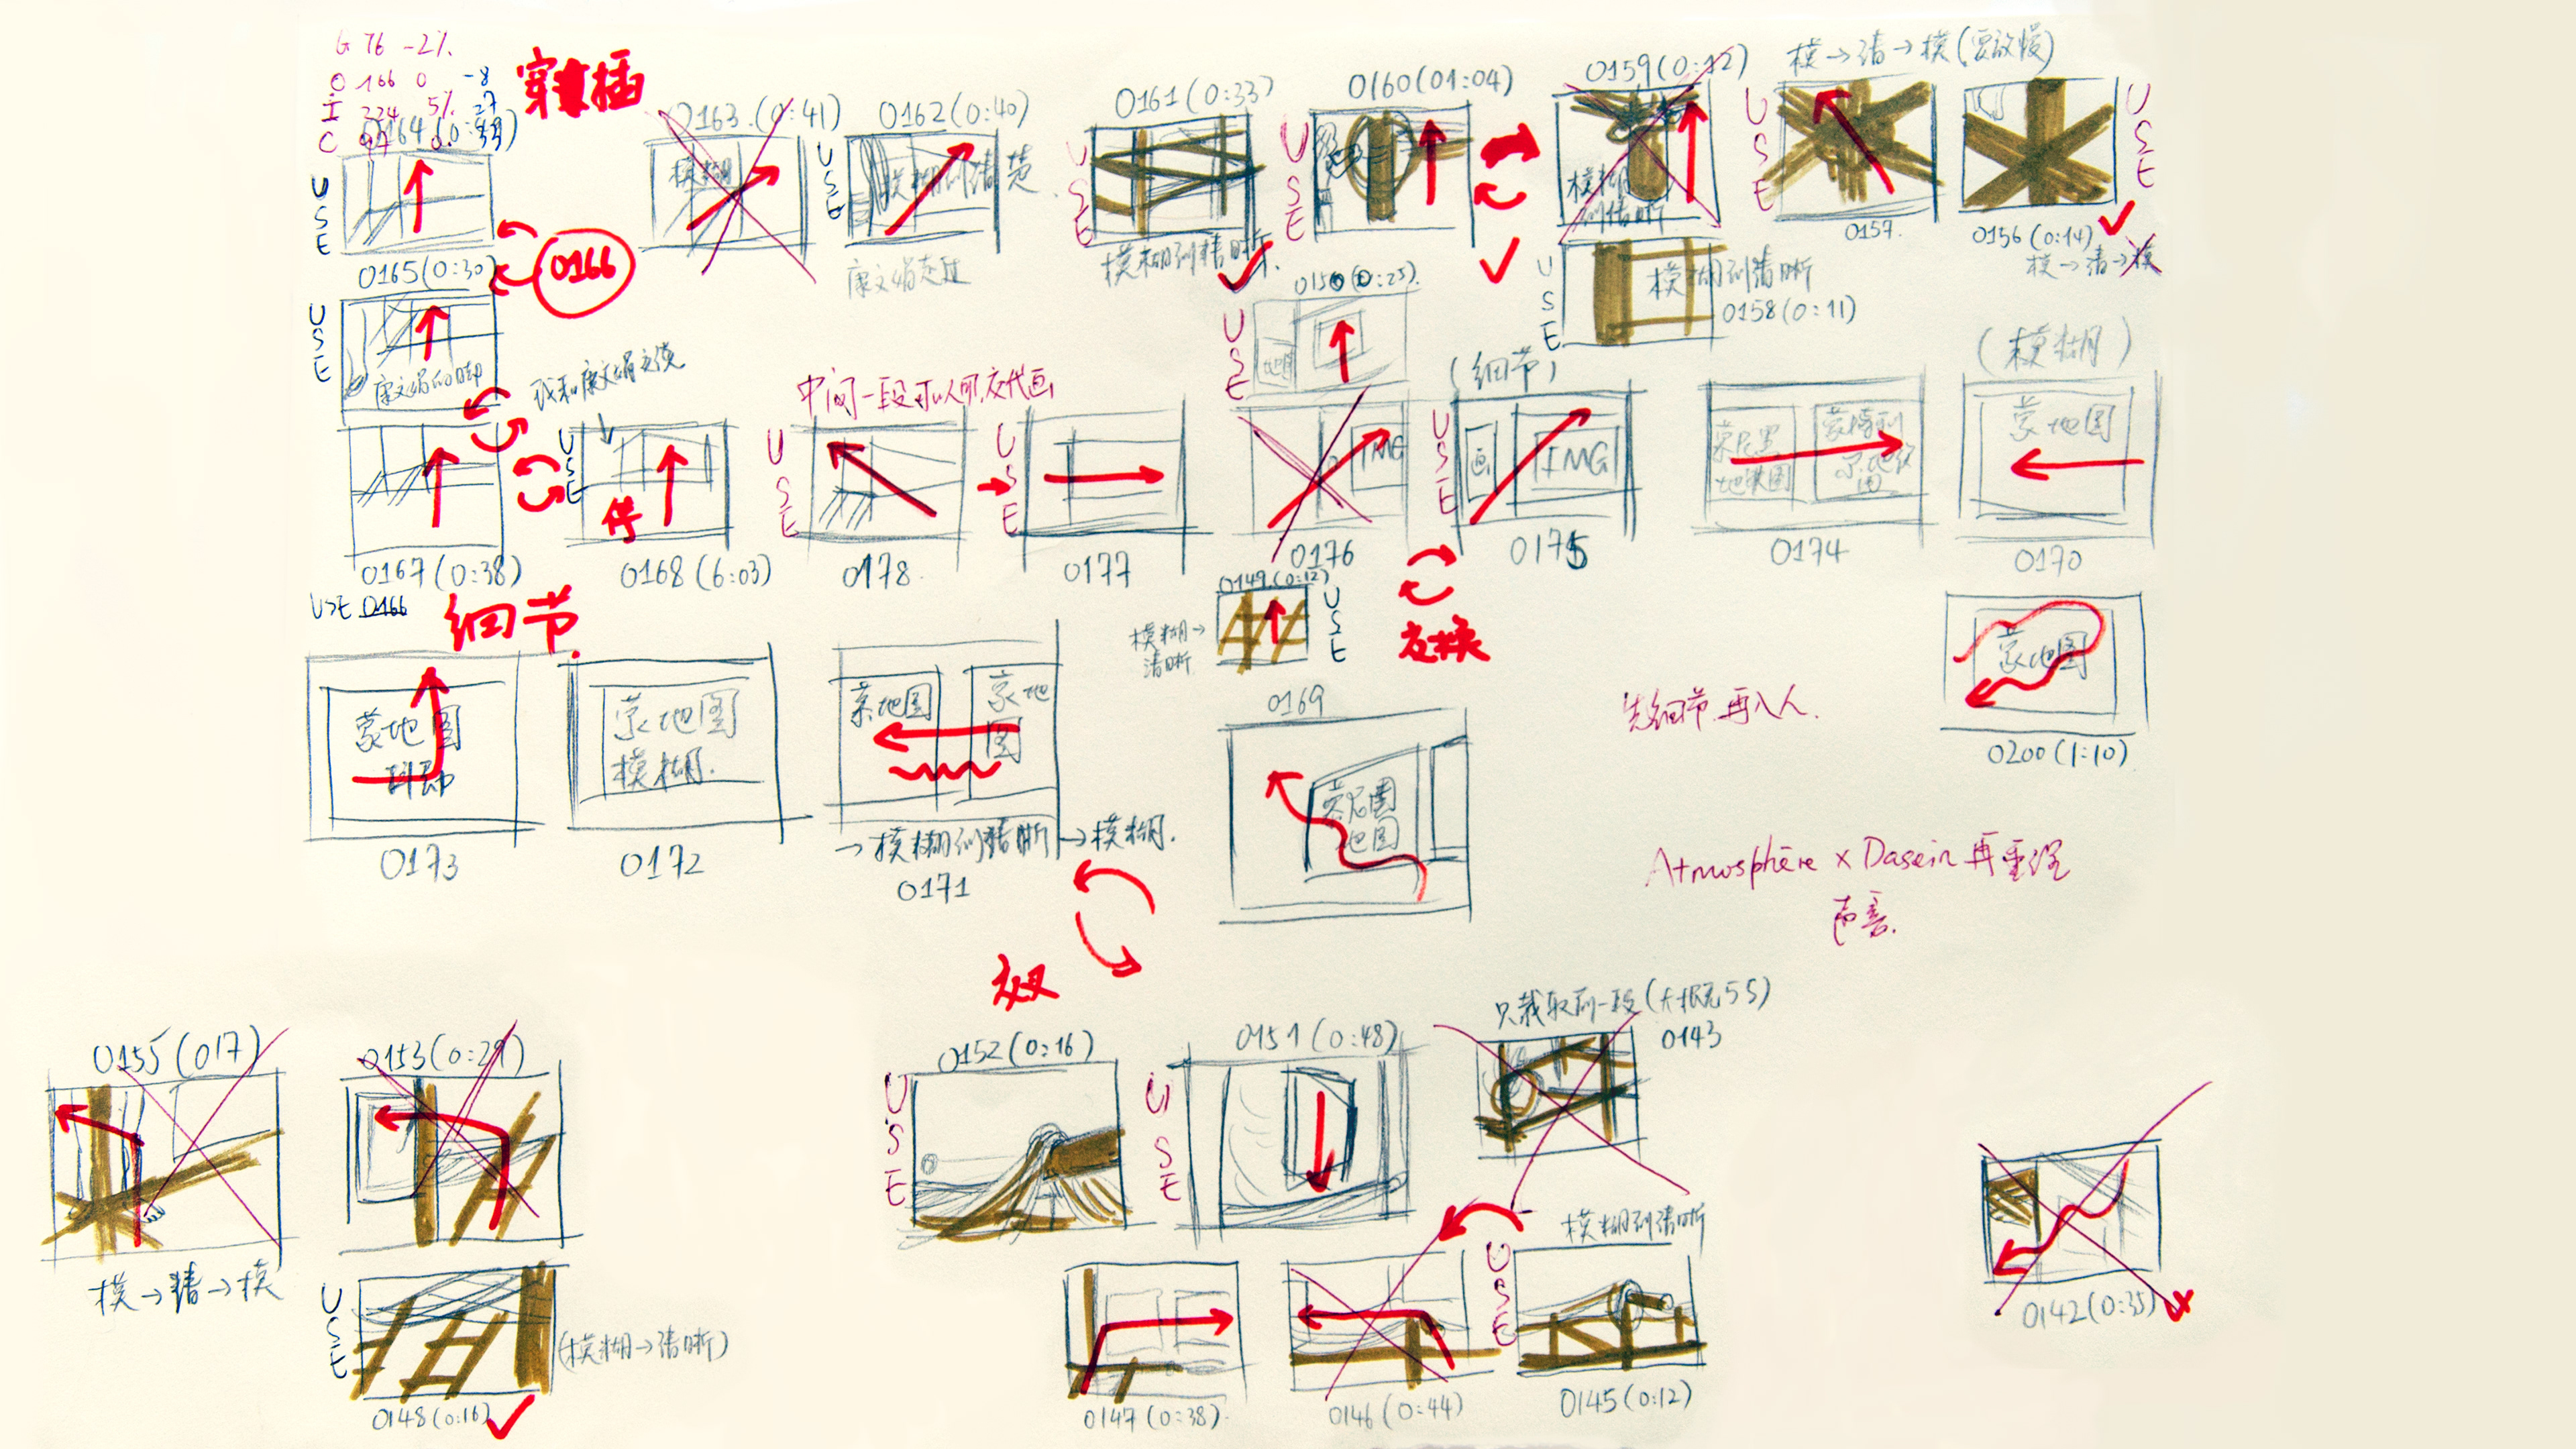 G 76 -2%.
O 166 0 -8
I 224 5% 27
穿插
0163 (0:41)
0162 (0:40)
0161 (0:33)
0160 (01:04)
0159 (0:12)
模→清→模 (要放慢)
USE
模糊
USE
模糊到清楚
USE
USE
模糊到清晰
USE
USE
0165 (0:30)
0166
康文娟走过
模糊到清晰
0157
0156 (0:14)
模→清→模
USE
康文娟的脚
USE
0150 (0:25)
USE
模糊到清晰
0158 (0:11)
我和康文娟交谈
中间一段可以人叫,交代画
(细节)
(模糊)
USE
停
USE
USE
IMG
USE
画
IMG
蒙地图
0167 (0:38)
0168 (6:03)
0178
0177
0176
0175
0174
0170
USE 0166
细节
0149 (0:12)
模糊→
清晰
USE
交换
蒙地图
0200 (1:10)
蒙地图
抖动
蒙地图
模糊.
蒙地图
蒙地图
0173
0172
→模糊到清晰→模糊.
0171
0169
先细节.再入人.
Atmosphère x Dasein 再重淫
声音.
交叉
0155 (017)
0153 (0:29)
0152 (0:16)
0151 (0:48)
0143
USE
USE
模→清→模
USE
(模糊→清晰)
0148 (0:16)
USE
模糊到清晰
0147 (0:38)
0146 (0:44)
0145 (0:12)
0142 (0:35)